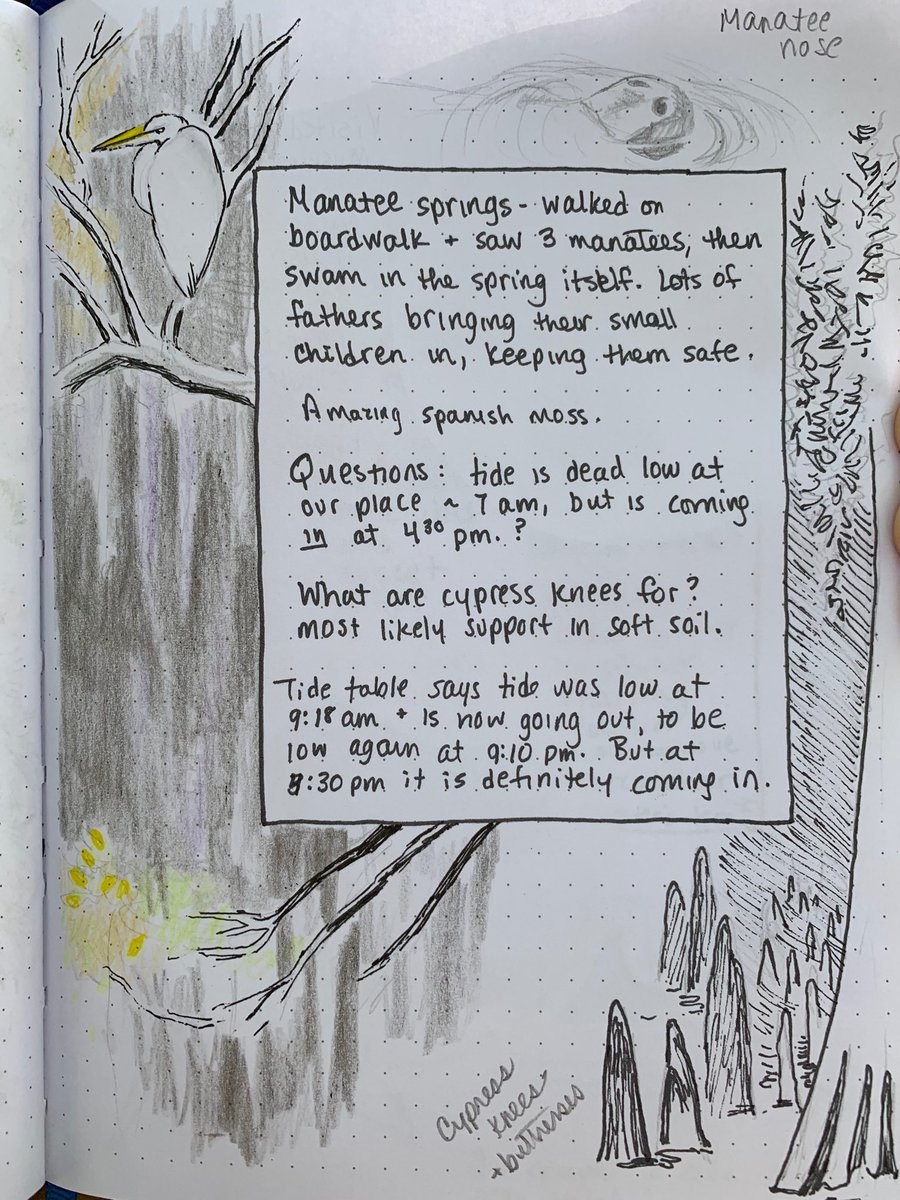 Manatee
nose
Manatee springs - walked on
boardwalk + saw 3 manatees, then
swam in the spring itself. Lots of
fathers bringing their small
children in, keeping them safe.
Amazing spanish moss.
Questions: tide is dead low at
our place ~ 7 am, but is coming
in at 4³⁰ pm. ?
What are cypress knees for?
most likely support in soft soil.
Tide table says tide was low at
9:18 am + is now going out, to be
low again at 9:10 pm. But at
:30 pm it is definitely coming in.
Cypress
knees
+ buttresses